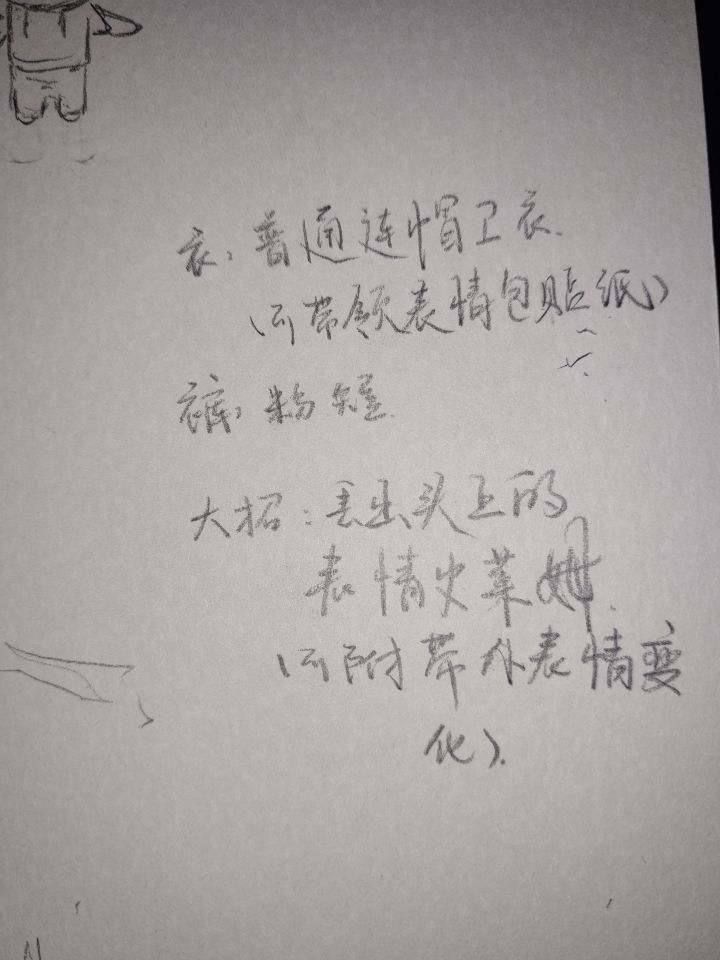 衣:普通连帽卫衣.
(可带领表情包贴纸)
裤:粉短
大招:丢出头上的
表情史莱姆.
(可附带外表情变
化).